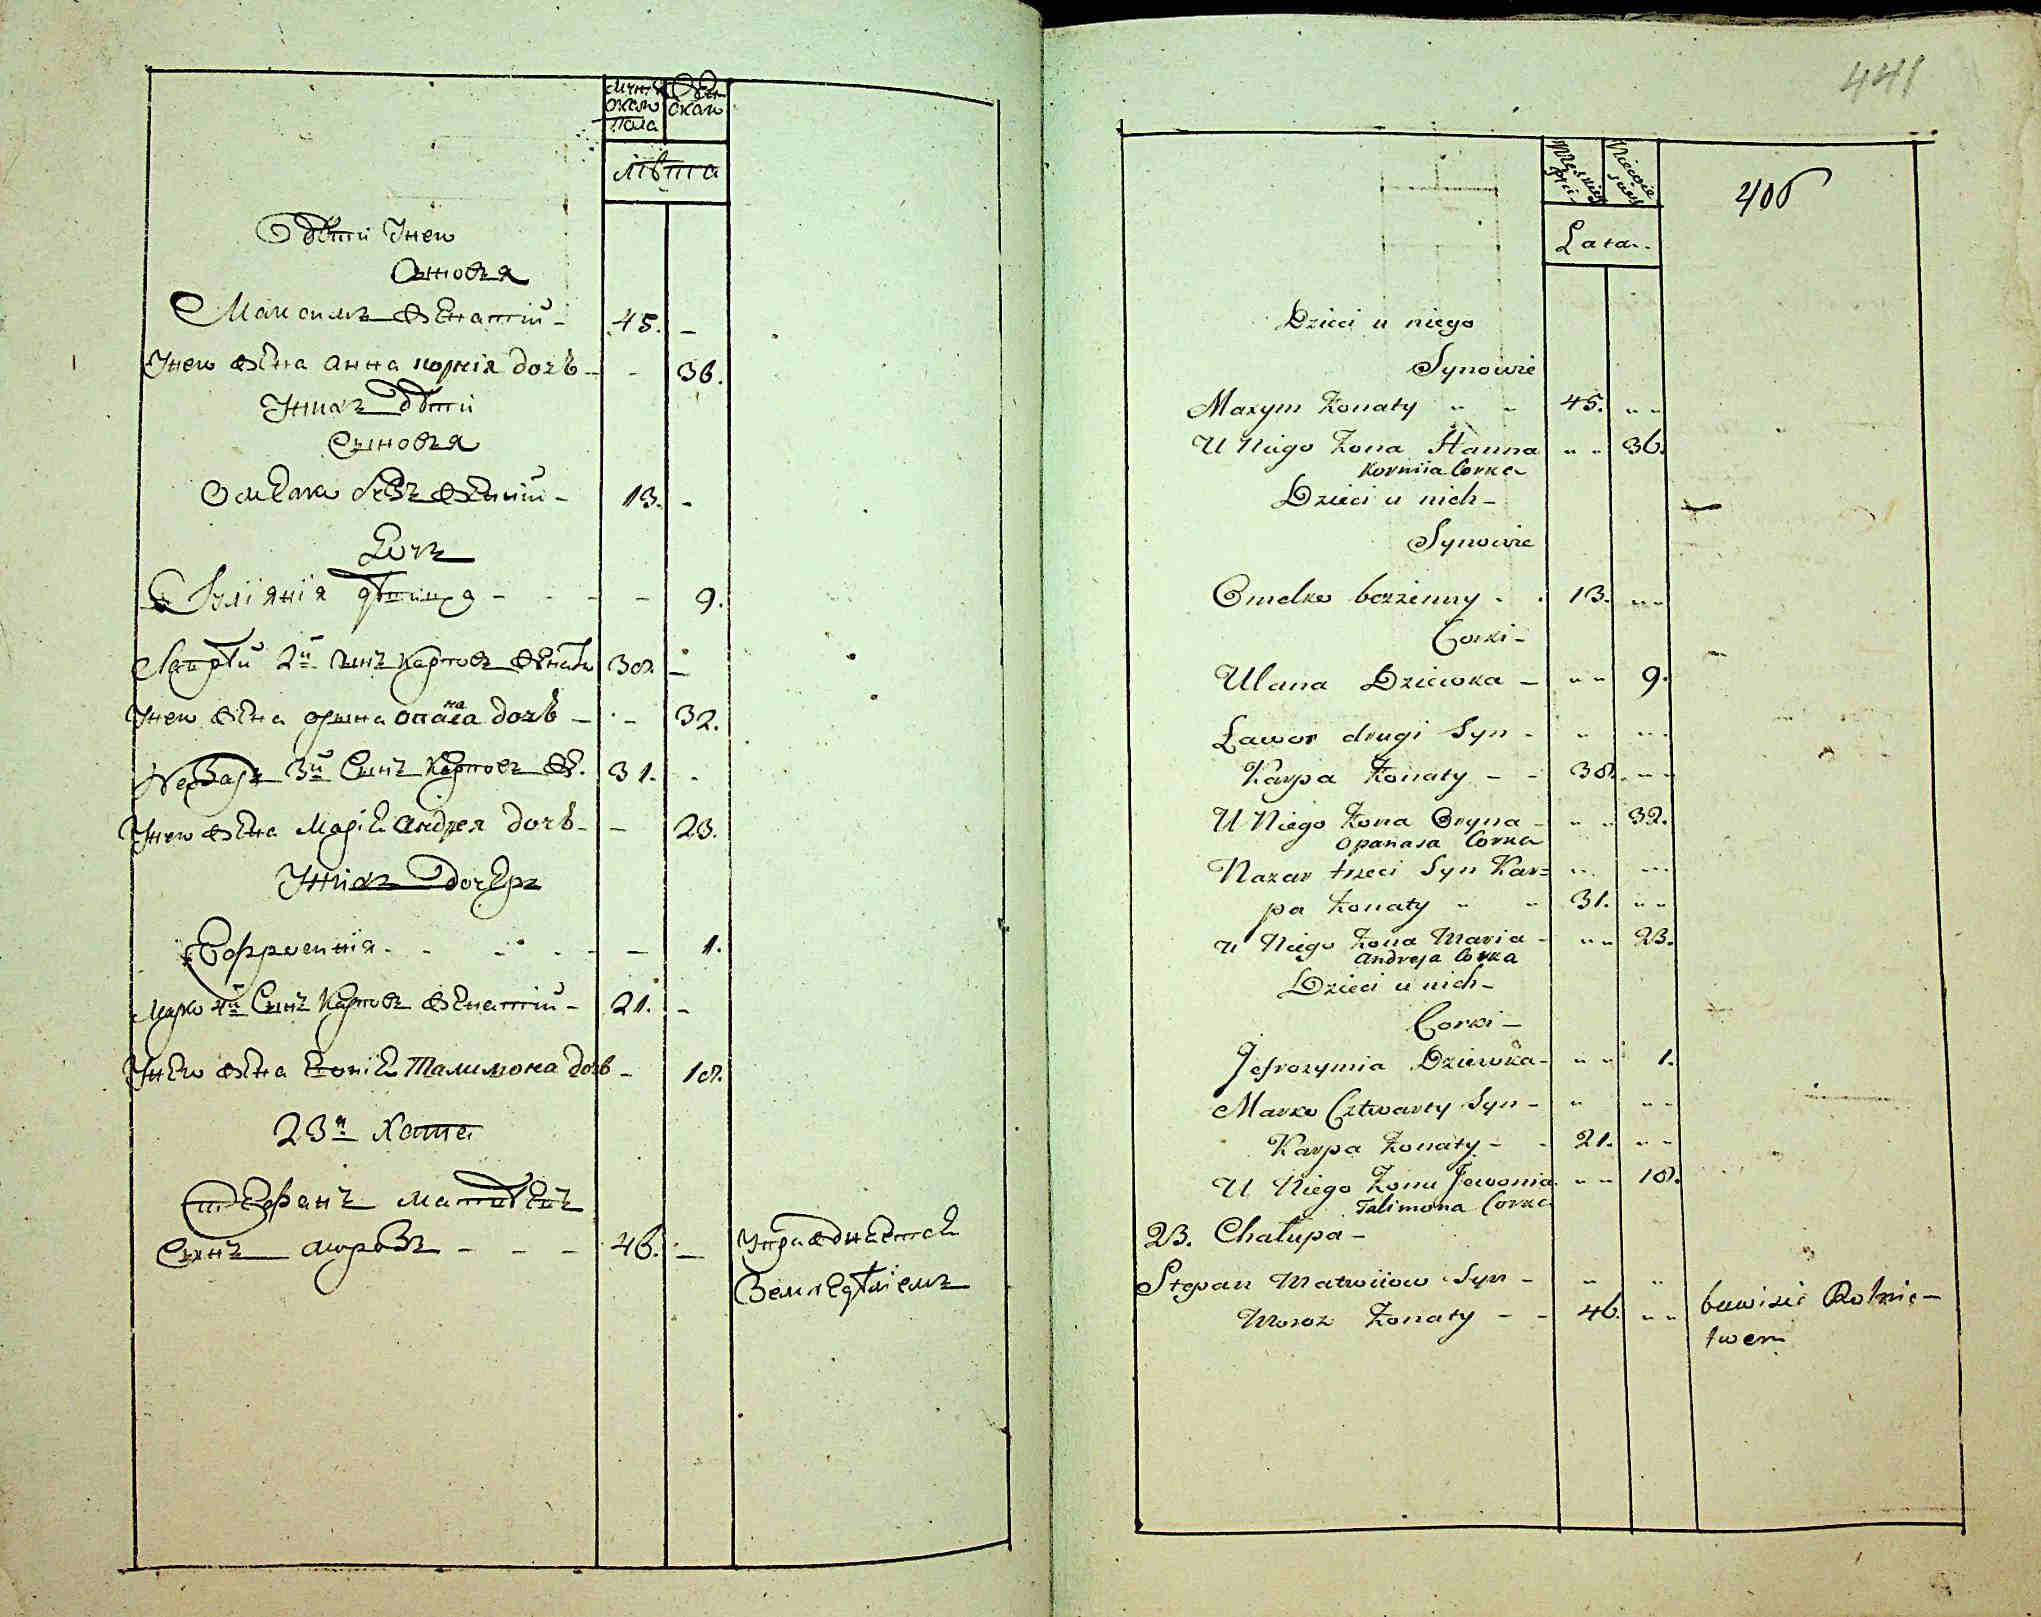 мужеска пола
женска
лѣта
Дѣти Унего
Сыновья
Максимъ женатий - 45. -
Унего жена анна корнія дочь - - 36.
Унихъ дѣти
Сыновья
Омелко безъ женний - 13. -
Дочъ
Улїянїя дѣвица - - - - 9.
Лаврѣй 2й сынъ карповъ женатъ 38 -
Унего жена орина опанаса дочь - - 32.
Незаръ 3й Сынъ карповъ же. 31. -
Унего жена Марія андрея дочь - - 23.
Унихъ дочеръ
Еофросинїя - - - - - 1.
Марко 4й Сынъ Карповъ женатий - 21. -
Унего жена Талимона дочь - 18.
23я хата
Стефанъ матвѣевъ
Сынъ морозъ - - - 46. - Упражднѣется
Земледѣлїемъ
441
Męskiey płci
Niewieściey
406
Lata..
Dzieci u niego
Synowie
Maxym Żonaty " - 45. " "
U Niego Żona Hanna " " 36.
Korniia Corka
Dzieci u nich -
Synowie
Omelko bezżenny - . 13. " "
Corki -
Ulana Dziewka - " " 9.
Ławor drugi Syn - " " "
Karpa Żonaty - - 38. " "
U Niego Żona Oryna - " " 32.
Opanasa Corka
Nazar trzeci Syn Kar= " " "
pa Żonaty " " 31. " "
u Niego Żona Maria - " " 23.
Andreja Corka
Dzieci u nich -
Corki -
Jefrozymia Dziewka - " " 1.
Marko Cztwarty Syn - " " "
Karpa Żonaty - - 21. " "
U Niego Żona Jewonia " " 18.
Talimona Corka
23. Chałupa -
Stepan Matwiiow Syn - " "
Moroz Żonaty - - 46. " " bawi sie Rolnic-
twem